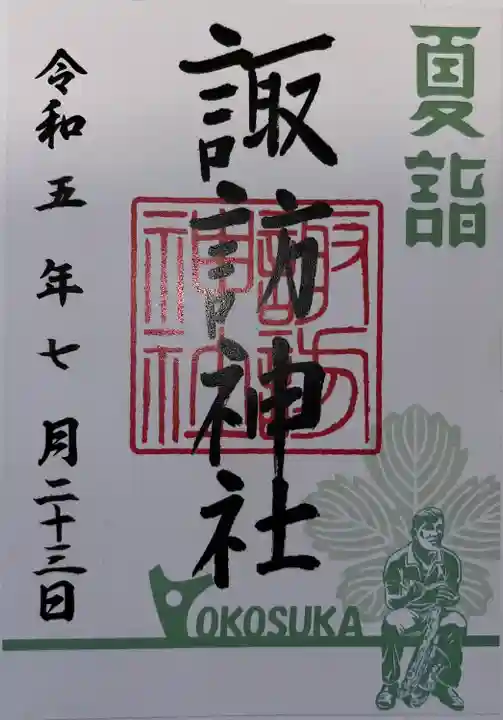 夏詣
諏訪神社
諏訪
神社
令和五年七月二十三日
YOKOSUKA